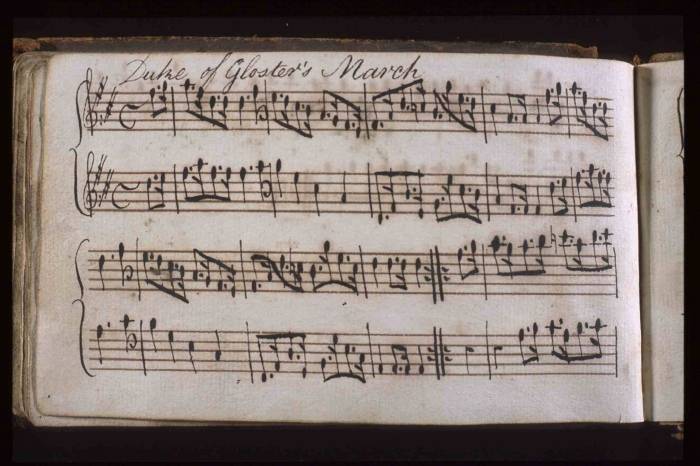 Duke of Gloster's March